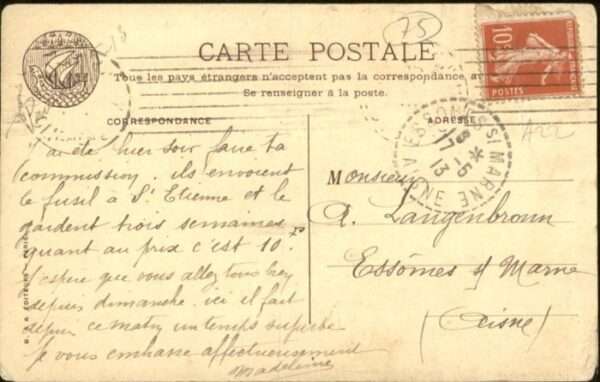 75
10c
POSTES
CARTE POSTALE
Tous les pays étrangers n'acceptent pas la correspondance au
Se renseigner à la poste.
CORRESPONDANCE
ADRESSE
A22
ESSOMES S/ MARNE
AISNE
* 5-5
17
13
J'ai été hier soir faire ta
commission. ils envoient
le fusil à St Etienne et le
gardent trois semaines
quant au prix c'est 10 f
J'espère que vous allez tous bien
depuis dimanche. ici il fait
depuis ce matin un temps superbe
Je vous embrasse affectueusement
Madeleine
Monsieur
A. Langenbronn
Essômes s/ Marne
(Aisne)
EDITEURS PARIS